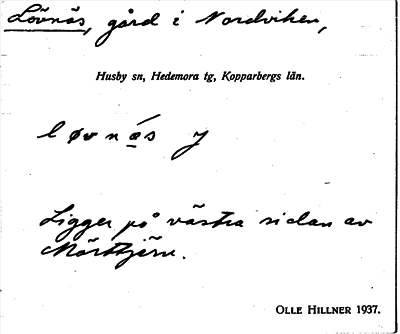 Lövnäs, gård i Nordviken,
Husby sn, Hedemora tg, Kopparbergs län.
løvnä́s y
Ligger på västra sidan av
Mörttjärn.
OLLE HILLNER 1937.